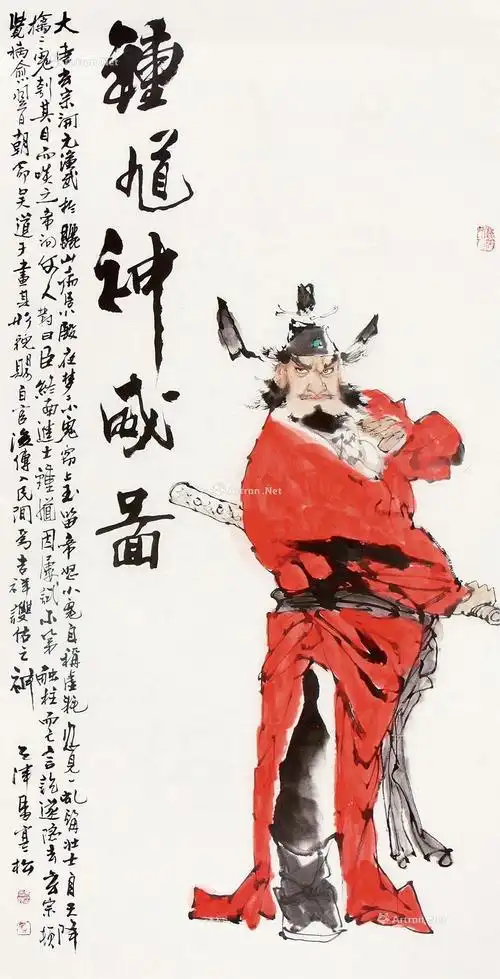 鍾馗神威啚
大唐玄宗開元講武於驪山 小殿在夢一小鬼竊上玉笛帝怒小鬼自稱虛耗 見一虬髯壯士自天降
擒小鬼刳其目而啖之帝問何人對曰臣終南進士鍾馗因屢試不第觸柱而亡言訖遂隱去玄宗頓
覺病愈翌日朝命吴道子畫其形貌賜百官後傳入民間爲吉祥護佑之神
天津馬寒松
Artron.Net
Artron.Net
Artron.Net